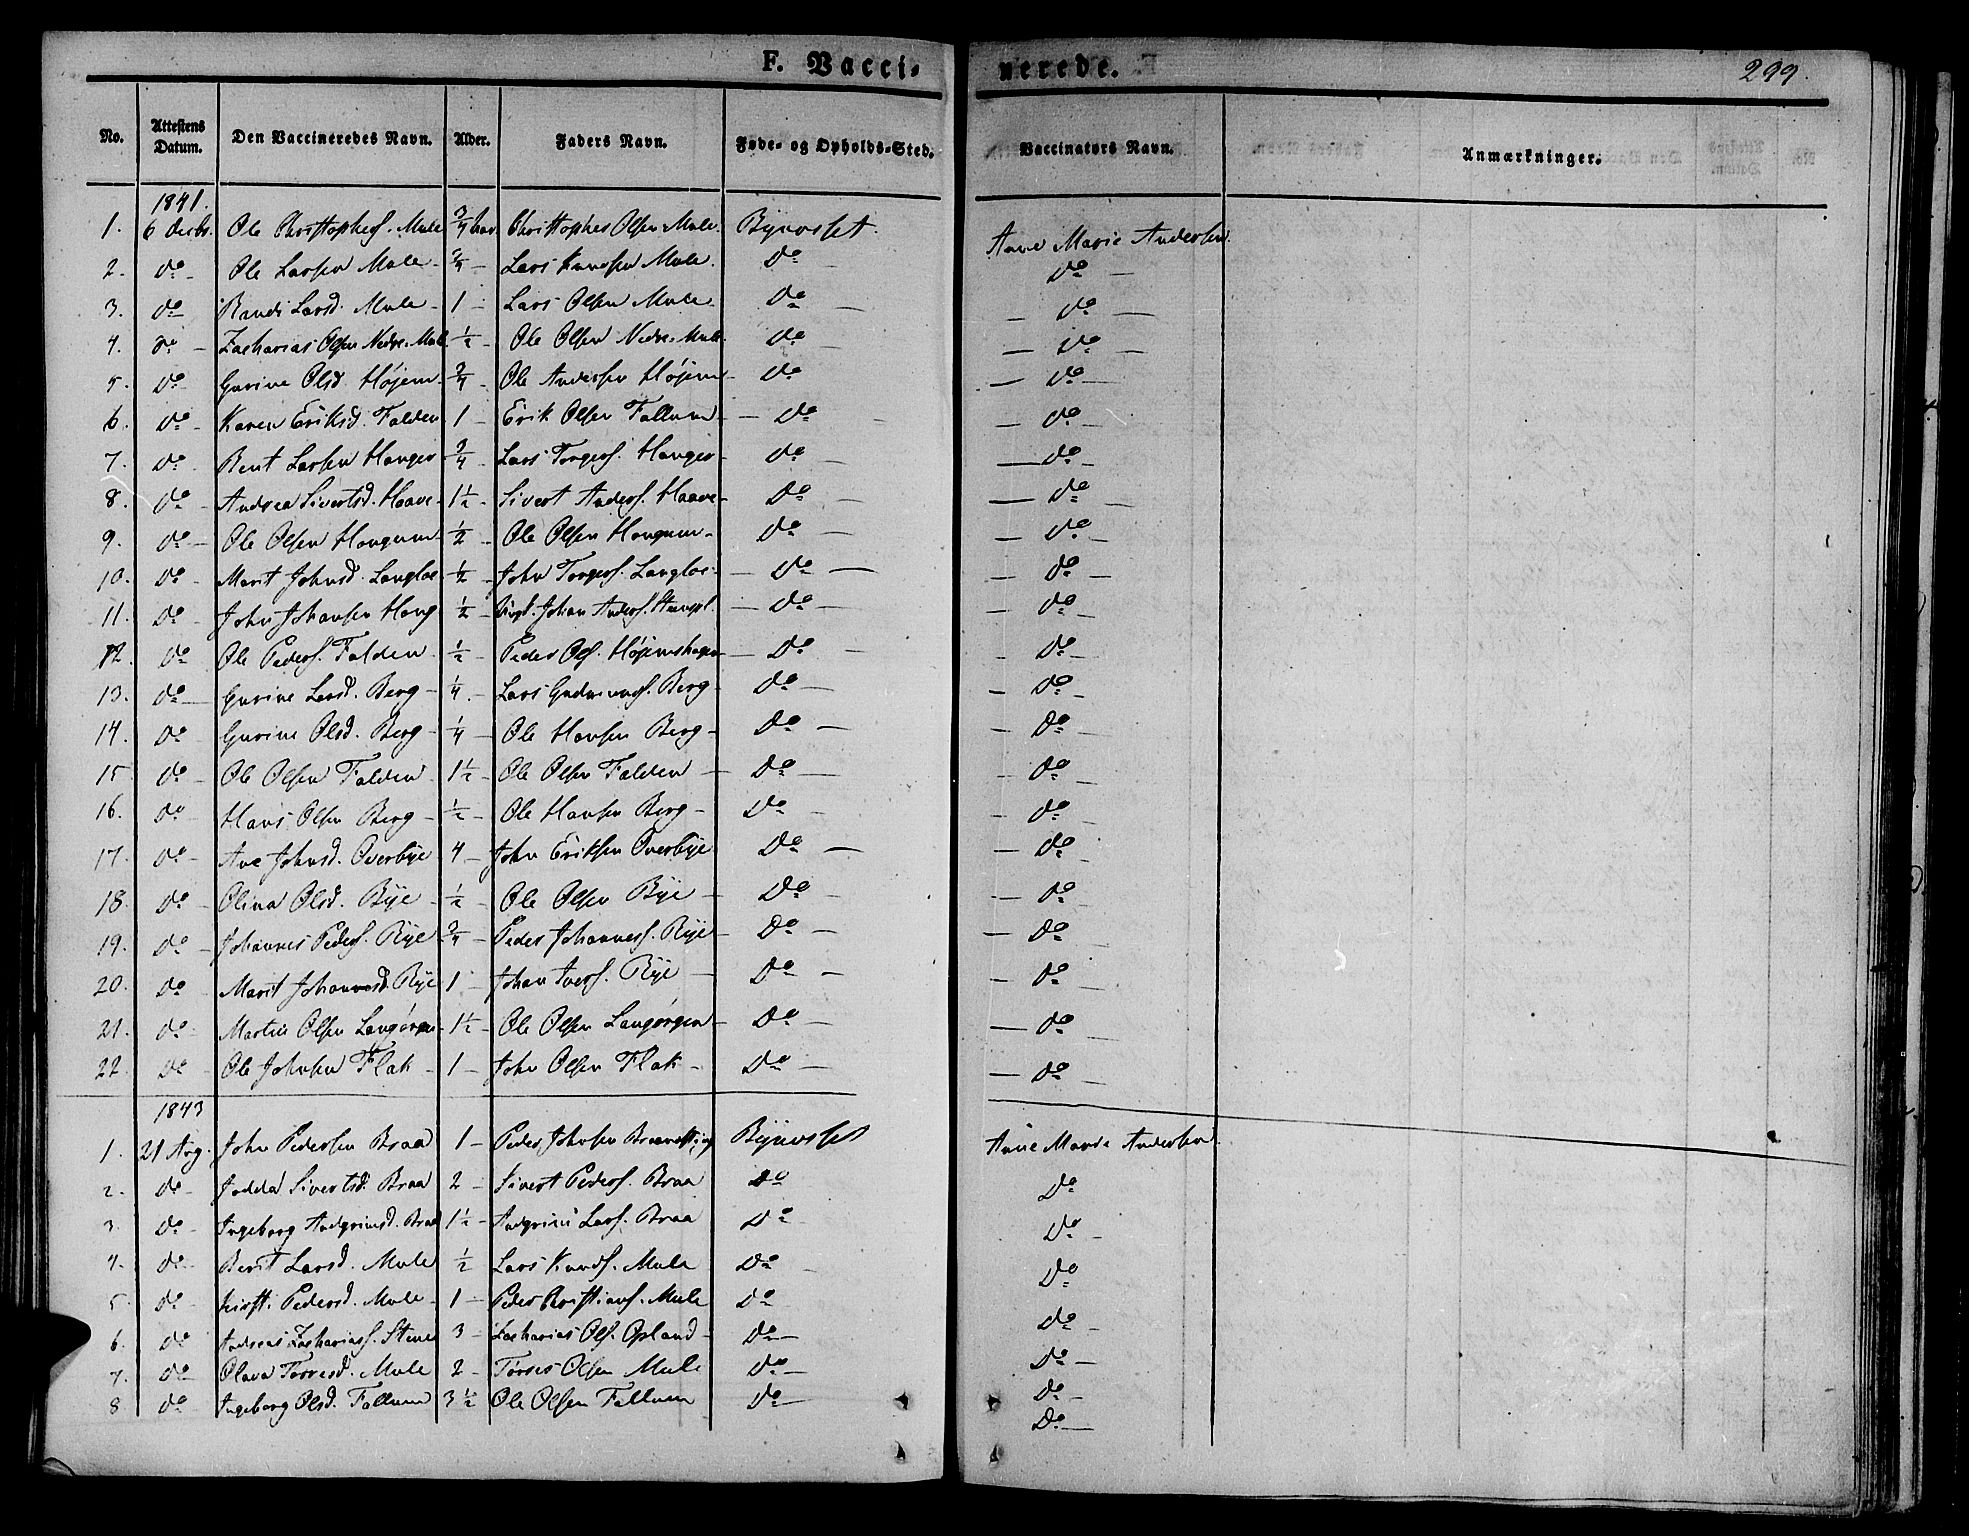 F. Vacci-nerede. 299.
No. Attestens Datum. Den Vaccineredes Navn. Alder. Faders Navn. Føde- og Opholds-Sted. Vaccinators Navn. Anmærkninger.
1841.
1. 6 Decbr. Ole Christophers. Mule 3/4 Aar. Christopher Olsen Mule. Bynesset. Anne Marie Andersen.
2. Do - Ole Larsen Mule - 3/4 - Lars Knudsen Mule. Do - Do -
3. Do - Randi Larsd. Mule - 1 - Lars Olsen Mule - Do - - Do -
4. Do - Zacharias Olsen Nedre-Mule 1/2 - Ole Olsen Nedre-Mule. Do - - Do -
5. Do - Gurine Olsd. Højem - 3/4 - Ole Andersen Højem - Do - - Do -
6. Do - Karen Eriksd. Falden 1 - Erik Olsen Fallum - - Do - - Do -
7. Do - Bent Larsen Hanger 3/4 - Lars Torgers. Hanger - Do - - Do -
8. Do - Andrea Sivertsd. Haave - 1 1/2 - Sivert Anders. Haave - Do - - Do -
9. Do - Ole Olsen Hangum - 1/2 - Ole Olsen Hangum - Do - - Do -
10. Do - Marit Johnsd. Langloe - 1/2 - John Torgers. Langloe - - Do - - Do -
11. Do - John Johansen Haug 1/2 - Johan Anders. - Do - - Do -
12. Do - Ole Peders. Falden - 1/2 - Peder Ols. Højemshagen - Do - - Do -
13. Do - Gurine Larsd. Berg - 1/4 - Lars Gudmunds. Berg - Do - - Do -
14. Do - Gurine Olsd. Berg - 1/4 - Ole Hansen Berg - Do - - Do -
15. Do - Ole Olsen Falden - 1 1/2 - Ole Olsen Falden - Do - - Do -
16. Do - Hans Olsen Berg - 1/2 - Ole Hansen Berg - Do - - Do -
17. Do - Ane Johnsd. Overbye 4 - John Eriksen Overbye Do - - Do -
18. Do - Olina Olsd. Bye - 1/2 - Ole Olsen Bye - Do - - Do -
19. Do - Johannes Peders. Rye - 3/4 - Peder Johannes. Rye - Do - - Do -
20. Do - Marit Johannesd. Rye 1 - Johan Ivers. Rye - Do - - Do -
21. Do - Martin Olsen Langørgen - 1 1/2 - Ole Olsen Langørgen - Do - - Do -
22. Do - Ole Johnsen Flak - 1 - John Olsen Flak - Do - - Do -
1843
1. 21 Aug. John Pedersen Braa 1 - Peder Johnsen Bynesset Anne Marie Andersen.
2. Do - Jodda Sivertsd. Braa 2 - Sivert Peders. Braa Do Do -
3. Do - Ingeborg Andgrimsd. Braa 1 1/2 - Andgrim Lars. Braa Do - Do -
4. Do - Berit Larsd. Mule 1/2 Lars Knuds. Mule Do Do
5. Do - Kirsti Pedersd. Mule - 1 - Peder Christians. Mule Do Do -
6. Do Andreas Zacharias. 3 - Zacharias Ols. Opland - Do - Do -
7. Do Olava Torresd. Mule 2 - Torres Olsen Mule Do - Do -
8 Do Ingeborg Olsd. Fallum 3 1/2 Ole Olsen Fallum Do - Do -